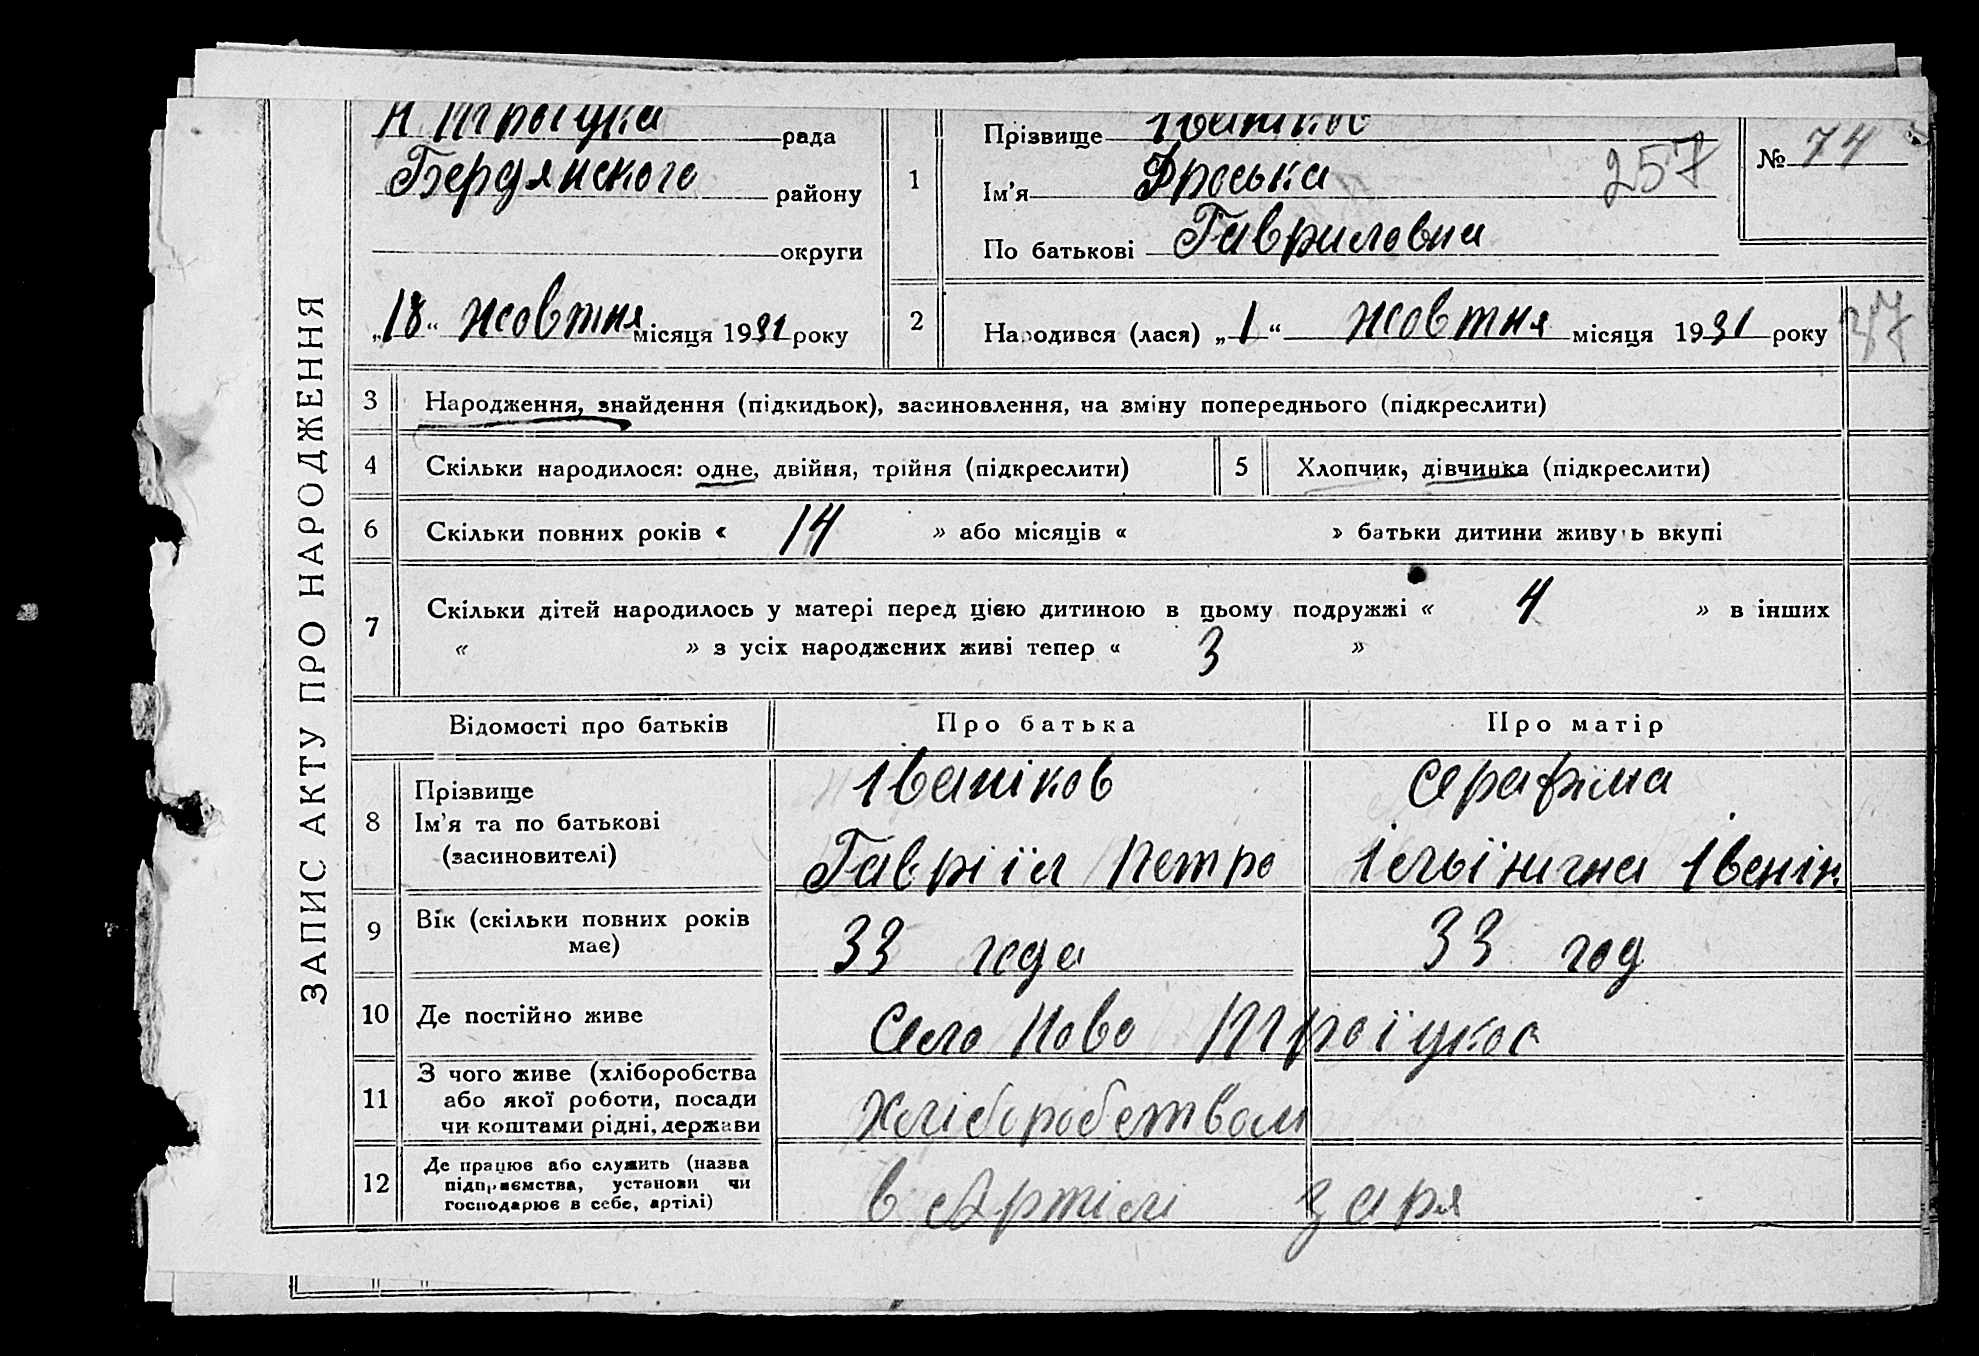 ЗАПИС АКТУ ПРО НАРОДЖЕННЯ
Н Троіцка рада
Бердянского району
округи
„18“ жовтня місяця 1931 року
1
Прізвище Іваніков
Ім’я Фроська
257
По батькові Гавриловна
№ 74
2
Народився (лася) „1“ жовтня місяця 1931 року
3
Народження, знайдення (підкидьок), засиновлення, на зміну попереднього (підкреслити)
4
Скільки народилося: одне, двійня, трійня (підкреслити)
5
Хлопчик, дівчинка (підкреслити)
6
Скільки повних років « 14 » або місяців « » батьки дитини живуть вкупі
7
Скільки дітей народилось у матері перед цією дитиною в цьому подружжі « 4 » в інших
« » з усіх народжених живі тепер « 3 »
Відомості про батьків
Про батька
Про матір
8
Прізвище
Ім’я та по батькові
(засиновителі)
Іваніков
Гавриіл Петро
Серафіма
Ільїнична Іванік
9
Вік (скільки повних років
має)
33 года
33 год
10
Де постійно живе
Село Ново Троїцкое
11
З чого живе (хліборобства
або якої роботи, посади
чи коштами рідні, держави
Хліборобством
12
Де працює або служить (назва
підприємства, установи чи
господарює в себе, артілі)
в Артілі заря